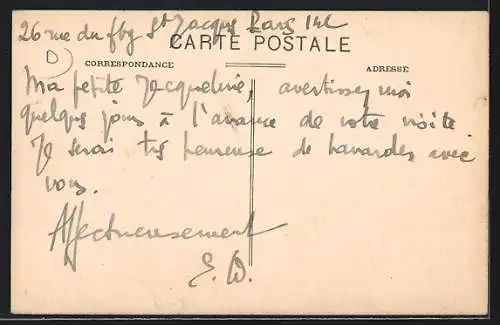 26 rue du fbg St Jacques Paris 14e
CARTE POSTALE
D
CORRESPONDANCE
ADRESSE
Ma petite Jacqueline, avertissez moi
quelques jours à l'avance de votre visite
Je serai très heureuse de bavarder avec
vous.
Affectueusement
E. D.